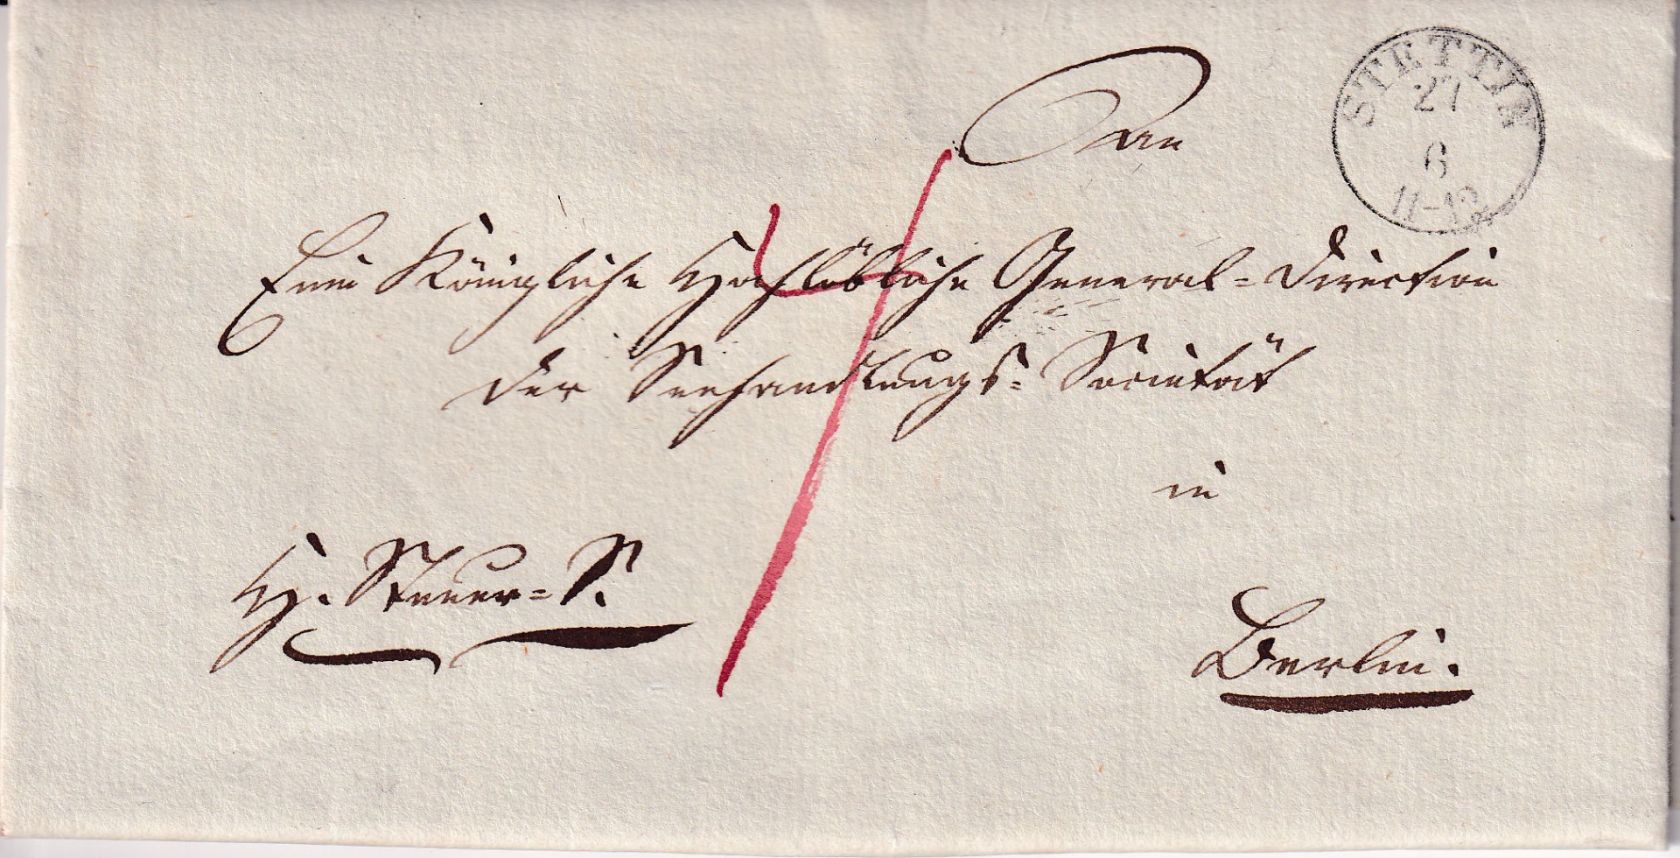 STETTIN
27
6
11-12
An
Eine Königliche Hochlöbliche General=Direction
der Seehandlungs=Societät
in
H. Steuer=S.
Berlin.